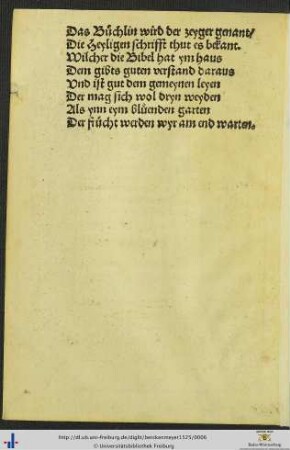 Das Büchlin wird der zeyger genant/
Die Heyligen schrifft thut es bekant.
Wilcher die Bibel hat ym haus
Dem gibts guten verstand daraus
Vnd ist gut dem gemeynen leyen
Der mag sich wol dryn weyden
Als ynn eym blüenden garten
Der frücht werden wyr am end warten.
http://dl.ub.uni-freiburg.de/diglit/beringermeyer1525/0006
© Universitätsbibliothek Freiburg